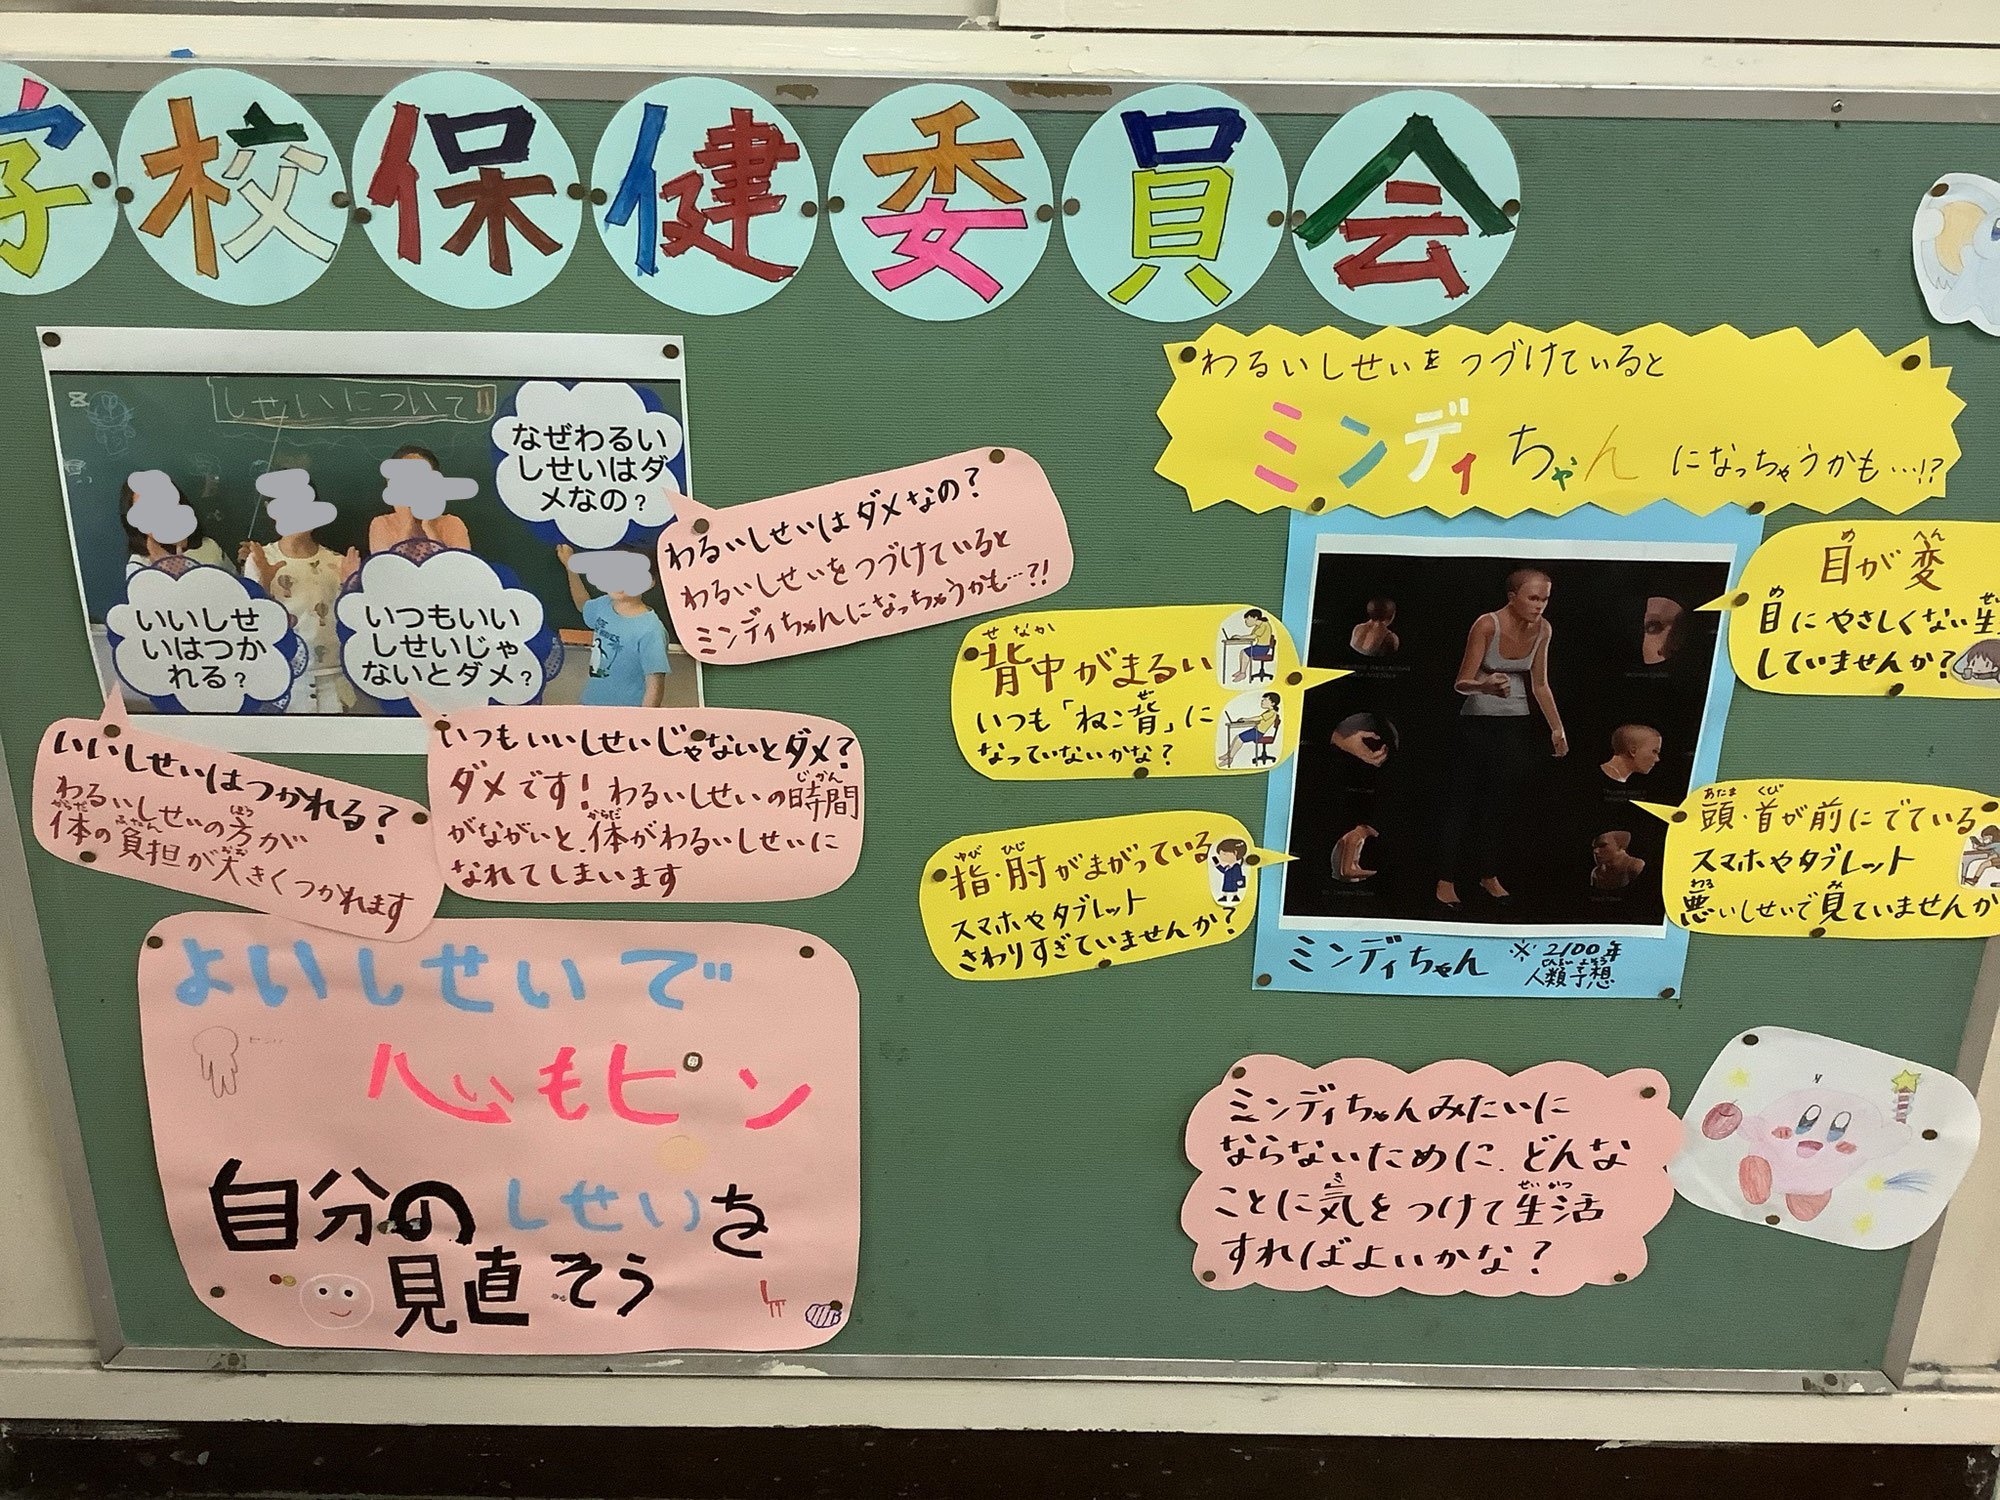 学校保健委員会
しせいについて
なぜわるい
しせいはダ
メなの？
いいしせ
いはつか
れる？
いつもいい
しせいじゃ
ないとダメ？
わるいしせいはダメなの？
わるいしせいをつづけていると
ミンディちゃんになっちゃうかも…?!
いいしせいはつかれる？
わるいしせいの方が
ほう
体の負担が大きくつかれます
からだ ふたん おお
いつもいいしせいじゃないとダメ？
ダメです！わるいしせいの時間
じかん
がながいと、体がわるいしせいに
からだ
なれてしまいます
よいしせいで
心もピン
自分のしせいを
見直そう
わるいしせいをつづけていると
ミンディちゃんになっちゃうかも…!?
せなか
背中がまるい
いつも「ねこ背」に
ぜ
なっていないかな？
ゆび ひじ
指・肘がまがっている
スマホやタブレット
さわりすぎていませんか？
め へん
目が変
め せい
目にやさしくない生
していませんか？
あたま くび
頭・首が前にでている
スマホやタブレット
わる み
悪いしせいで見ていませんか
ミンディちゃん
※2100年
じんるい よそう
人類予想
ミンディちゃんみたいに
ならないために、どんな
き せいかつ
ことに気をつけて生活
すればよいかな？